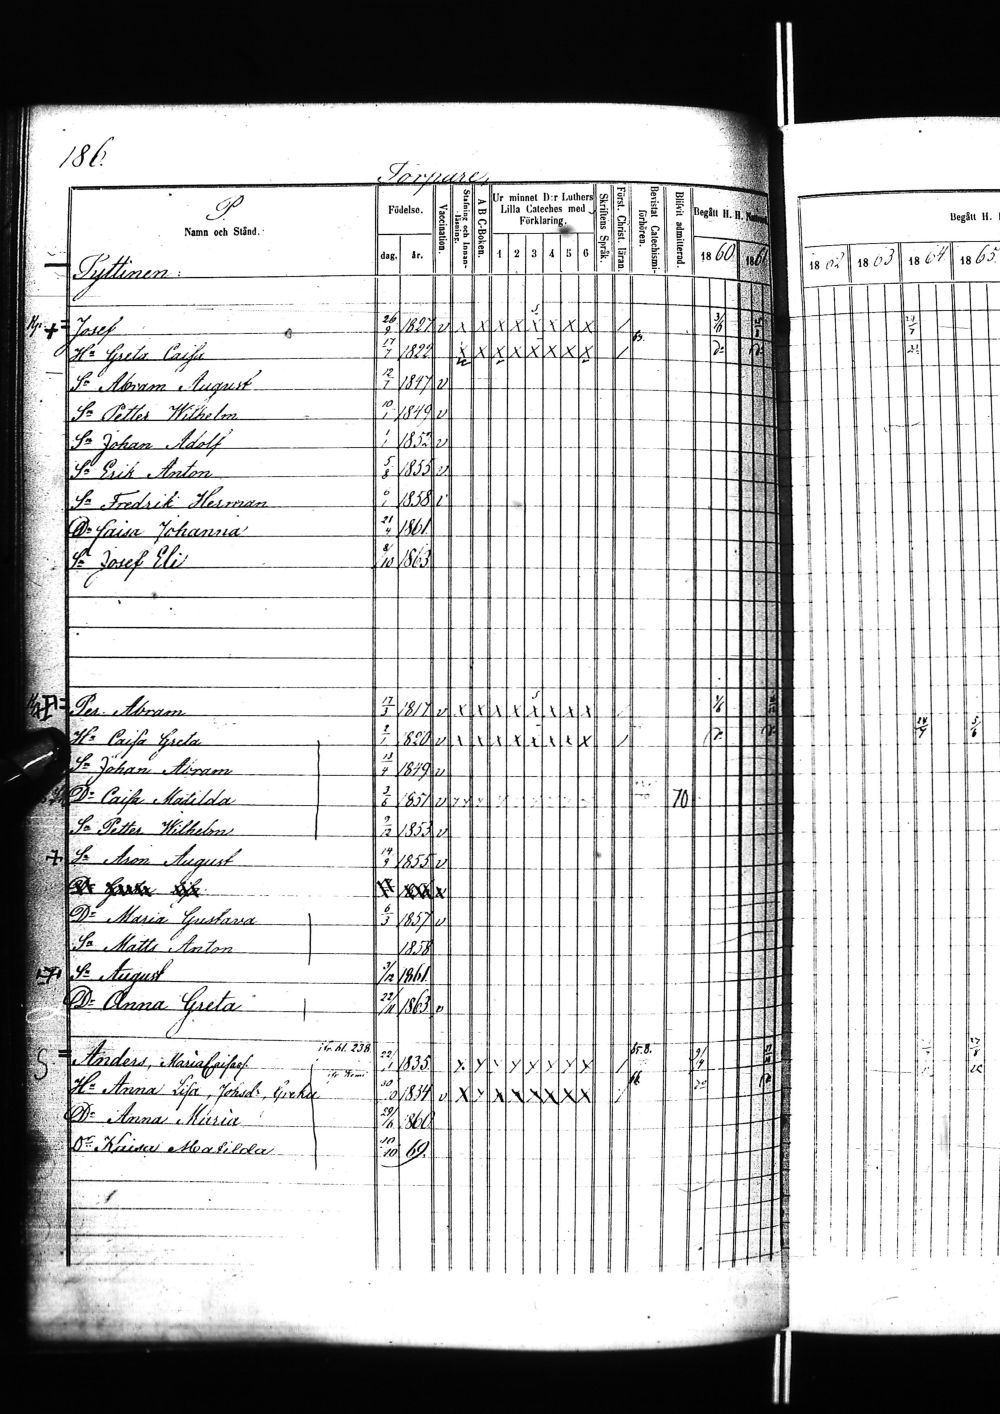 186.
Torpare,
P
Namn och Stånd.
Födelse.
dag. år.
Vaccination.
Stafning och Innanläsning.
A B C-Boken.
Ur minnet D:r Luthers Lilla Cateches med Förklaring.
1 2 3 4 5 6
Skriftens Språk.
Först. Christ. läran.
Bevistat Catechismiförhören.
Blifvit admitterad.
Begått H. H. Nattvard
1860 1861
Begått H.
1862 1863 1864 1865
Tyttinen.
Josef 26/9 1827 v x x x x x x x x /
Hu Greta Caisa 17/7 1822 x x x x x x x x /
Sn Abram August 12/7 1847 v
Sn Petter Wilhelm 10/1 1849 v
Sn Johan Adolf 1/1 1852 v
Sn Erik Anton 5/8 1855 v
Sn Fredrik Herman 6/1 1858 v
Dr Caisa Johanna 21/4 1861
Sn Josef Eli 2/10 1863
Per Abram 17/3 1817 v x x x x x x x x /
Hu Caisa Greta 2/1 1820 v x x x x x x x x /
Sn Johan Abram 13/4 1849 v
Dr Caisa Matilda 3/6 1851 v 70
Sn Petter Wilhelm 9/12 1853 v
Sn Aron August 14/9 1855 v
Dr Maria Gustava 6/3 1857 v
Sn Matts Anton 1858
Sn August 3/12 1861
Dr Anna Greta 22/11 1863 v
Anders, 238. 22/1 1835 65. 8.
Hu Anna Lisa, Johsdr, 1834 v 66
Dr Anna Maria 29/6 1860
Dr Kaisa Matilda 10/10 69.